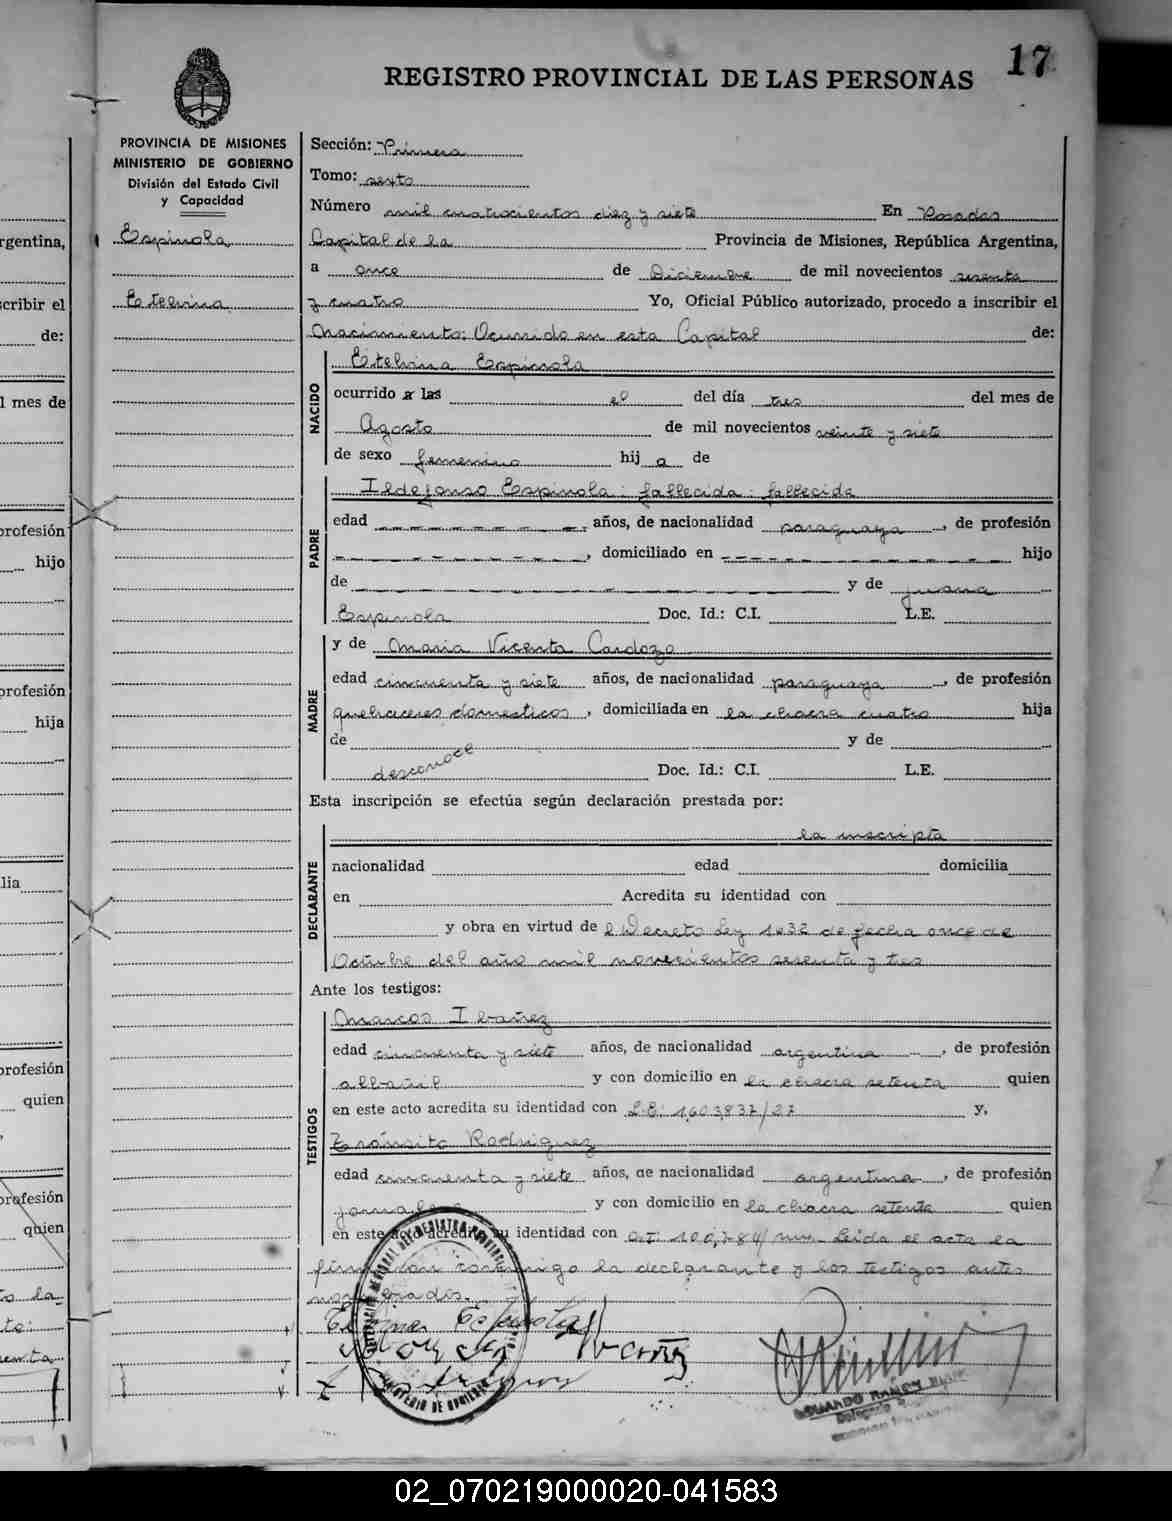 17
REGISTRO PROVINCIAL DE LAS PERSONAS
PROVINCIA DE MISIONES
MINISTERIO DE GOBIERNO
División del Estado Civil
y Capacidad
Espinola
Etelvina
Sección: Primera
Tomo: sexto
Número mil cuatrocientos diez y siete En Posadas
Capital de la Provincia de Misiones, República Argentina,
a once de Diciembre de mil novecientos sesenta
y cuatro Yo, Oficial Público autorizado, procedo a inscribir el
Nacimiento: Ocurrido en esta Capital de:
NACIDO
Etelvina Espinola
ocurrido a las el del día tres del mes de
Agosto de mil novecientos veinte y siete
de sexo femenino hij a de
PADRE
Ildefonso Espinola: fallecida: fallecida
edad años, de nacionalidad paraguaya, de profesión
, domiciliado en hijo
de y de Juana
Espinola Doc. Id.: C.I. L.E.
MADRE
y de Maria Vicenta Cardozo
edad cincuenta y siete años, de nacionalidad paraguaya, de profesión
quehaceres domesticos, domiciliada en la chacra cuatro hija
de y de
desconoce Doc. Id.: C.I. L.E.
Esta inscripción se efectúa según declaración prestada por:
DECLARANTE
la inscripta
nacionalidad edad domicilia
en Acredita su identidad con
y obra en virtud de l Decreto Ley 1032 de fecha once de
Octubre del año mil novecientos sesenta y tres
Ante los testigos:
TESTIGOS
Marcos Ibañez
edad cincuenta y siete años, de nacionalidad argentina, de profesión
albañil y con domicilio en la chacra setenta quien
en este acto acredita su identidad con L.E: 1.603.837/27 y,
Tránsito Rodriguez
edad cincuenta y siete años, de nacionalidad argentina, de profesión
y con domicilio en la chacra setenta quien
en este acto acredita su identidad con C.I: 100.784/ Leida el acta la
firman conmigo la declarante y los testigos antes
nombrados.
Espinola
Ibañez
EDUARDO RAMON
Delegado
rgentina,
cribir el
de:
l mes de
profesión
hijo
profesión
hija
lia
profesión
quien
profesión
quien
02_070219000020-041583